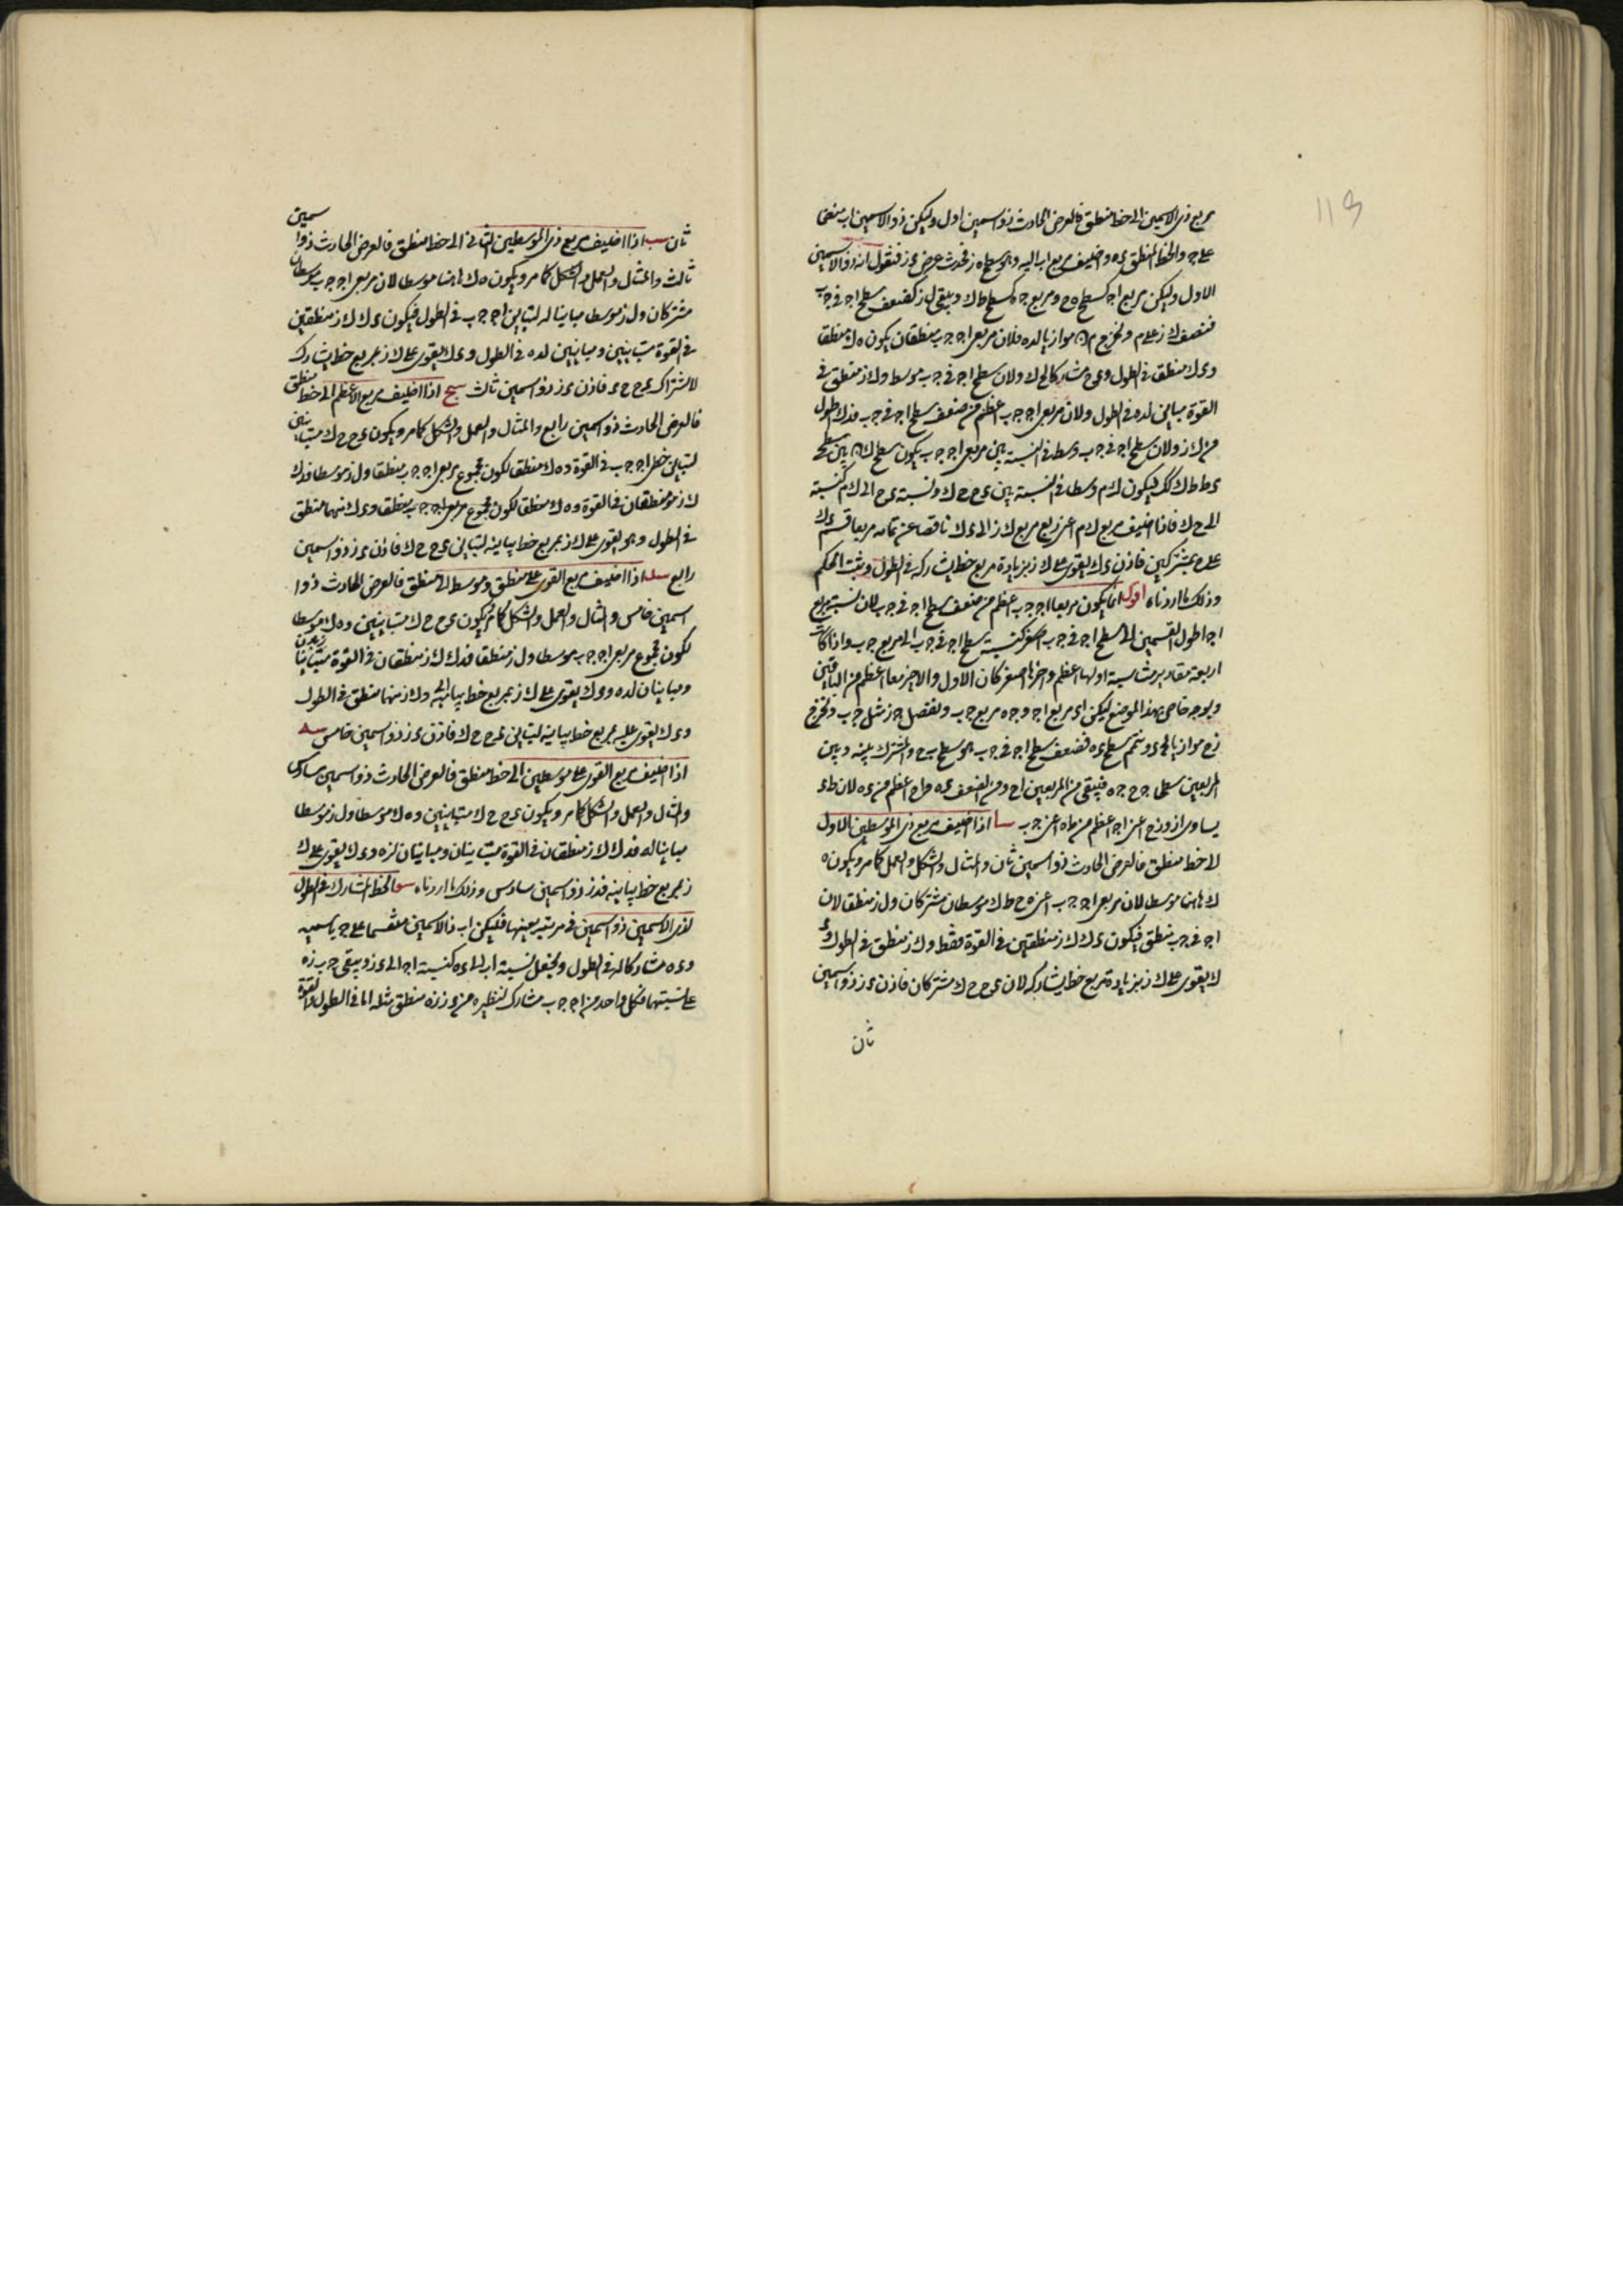 مربع ذى الاسمين الى خط منطق فالعرض الحادث ذو اسمين اول وليكن ذو الاسمين اب منقسما
على ج والخط المنطق ءه واضيف مربع اب اليه وهو سطح ه ز فحدث عرض ء ز فنقول انه ذو الاسمين
الاول وليكن مربع اج كسطح ه ح ومربع ج ب كسطح ط ك ويبقى ل ز كضعف سطح اج فى ج ب
فننصف ك ز على م ونخرج م ن موازيا لـ ء ه فلان مربعى اج ج ب منطقان يكون ه ك منطقا
و ء ك منطق فى الطول و ء ح مشاركا لـ ح ك ولان سطح اج فى ج ب موسط و ك ز منطق فى
القوة مباين لـ ء ه فى الطول ولان مربعى اج ج ب اعظم من ضعف سطح اج فى ج ب فـ ء ك اطول
من ك ز ولان سطح اج فى ج ب وسط فى النسبة بين مربعى اج ج ب يكون سطح ك ن بين سطحى
ء ط ط ك كك فيكون ك م وسطا فى النسبة بين ء ح ح ك ونسبة ء ح الى ك م كنسبة
الى ح ك فاذا اضيف مربع ك م اعنى ربع مربع ك ز الى ء ك ناقصا عن تمامه مربعا قسم ء ك
على ح بمشتركين فاذن ء ك يقوى على ك ز بزيادة مربع خط يشاركه فى الطول ويثبت الحكم
وذلك ما اردناه اقول انما يكون مربعا اج ج ب اعظم من ضعف سطح اج فى ج ب لان نسبة مربع
اج اطول القسمين الى سطح اج فى ج ب اصغر كنسبة سطح اج فى ج ب الى مربع ج ب واذا كانت
اربعة مقادير متناسبة اولها اعظم واخرها اصغر كان الاول والاخير معا اعظم من الباقيين
وبوجه خاص بهذا الموضع ليكن اء مربع اج و ج ه مربع ج ب ونفصل ج ز مثل ج ب ونخرج
ز ح موازيا لـ ء ونتمم سطح ء ه فضعف سطح اج فى ج ب هو سطح ب ح والمشترك بينه وبين
المربعين سطحا ج ح ج ه فيبقى من المربعين ا ح ومن الضعف ء ه و ا ح اعظم من ء ه لان ط ء
يساوى از و ز ح اعنى اج اعظم من ط ه اعنى ج ب سا اذا اضيف مربع ذى الموسطين الاول
الى خط منطق فالعرض الحادث ذو اسمين ثان والمثال والشكل والعمل كما مر ويكون ه
ك هاهنا موسطا لان مربعى اج ج ب اعنى ه ح ط ك موسطان مشتركان و ل ز منطق لان
اج فى ج ب منطق فيكون ء ك ك ز منطقين فى القوة فقط و ك ز منطق فى الطول و ء
ك يقوى على ك ز بزيادة مربع خط يشاركه لان ء ح ح ك مشتركان فاذن ء ز ذو اسمين
ثان
ثان سب اذا اضيف مربع ذى الموسطين الثانى الى خط منطق فالعرض الحادث ذو اسمين
ثالث والمثال والعمل والشكل كما مر ويكون ه ك هاهنا موسطا لان مربعى اج ج ب موسطان
مشتركان و ل ز موسطا مباينا له لتباين اج ج ب فى الطول فيكون ء ك ك ز منطقين
فى القوة متباينين ومباينين لـ ء ه فى الطول و ء ك يقوى على ك ز بمربع خط يشاركه
لاشتراك ء ح ح ك فاذن ء ز ذو اسمين ثالث سج اذا اضيف مربع الاعظم الى خط منطق
فالعرض الحادث ذو اسمين رابع والمثال والعمل والشكل كما مر ويكون ء ح ح ك متباينين
لتباين خطى اج ج ب فى القوة و ه ك منطق لكون مجموع مربعى اج ج ب منطقا و ل ز موسطا فـ ء ك
ك ز منطقان فى القوة و ه ك منطقا لكون مجموع مربعى اج ج ب منطقا و ء ك منهما منطق
فى الطول وهو يقوى على ك ز بمربع خط يباينه لتباين ء ح ح ك فاذن ء ز ذو اسمين
رابع سد اذا اضيف مربع القوى على منطق وموسط الى منطق فالعرض الحادث ذو ا
سمين خامس والمثال والعمل والشكل كما مر فيكون ء ح ح ك متباينين و ه ك موسطا
لكون مجموع مربعى اج ج ب موسطا و ل ز منطقا فـ ء ك ك ز منطقان فى القوة متباينان
ومباينان لـ ء ه و ء ك يقوى على ك ز بمربع خط يباينه و ك ز منهما منطق فى الطول
و ء ك يقوى عليه بمربع خط يباينه لتباين ء ح ح ك فاذن ء ز ذو اسمين خامس سه
اذا اضيف مربع القوى على موسطين الى خط منطق فالعرض الحادث ذو اسمين سادس
والمثال والعمل والشكل كما مر ويكون ء ح ح ك متباينين و ه ك موسطا و ل ز موسطا
مباينا له فـ ء ك ك ز منطقان فى القوة متباينان ومباينان لـ ء ه و ء ك يقوى على ك
ز بمربع خط يباينه فـ ء ز ذو اسمين سادس وذلك ما اردناه سو الخط المشارك فى الطول
لذى الاسمين ذو اسمين فى مرتبته بعينها فليكن اب ذا الاسمين منقسما على ج باسميه
و ء ه مشاركا له فى الطول ونجعل نسبة اب الى ء ه كنسبة اج الى ء ز ويبقى ج ب ز ه
على نسبتهما فكل واحد من اج ج ب مشارك لنظيره من ء ز ز ه منطق مثله اما فى الطول او القوة